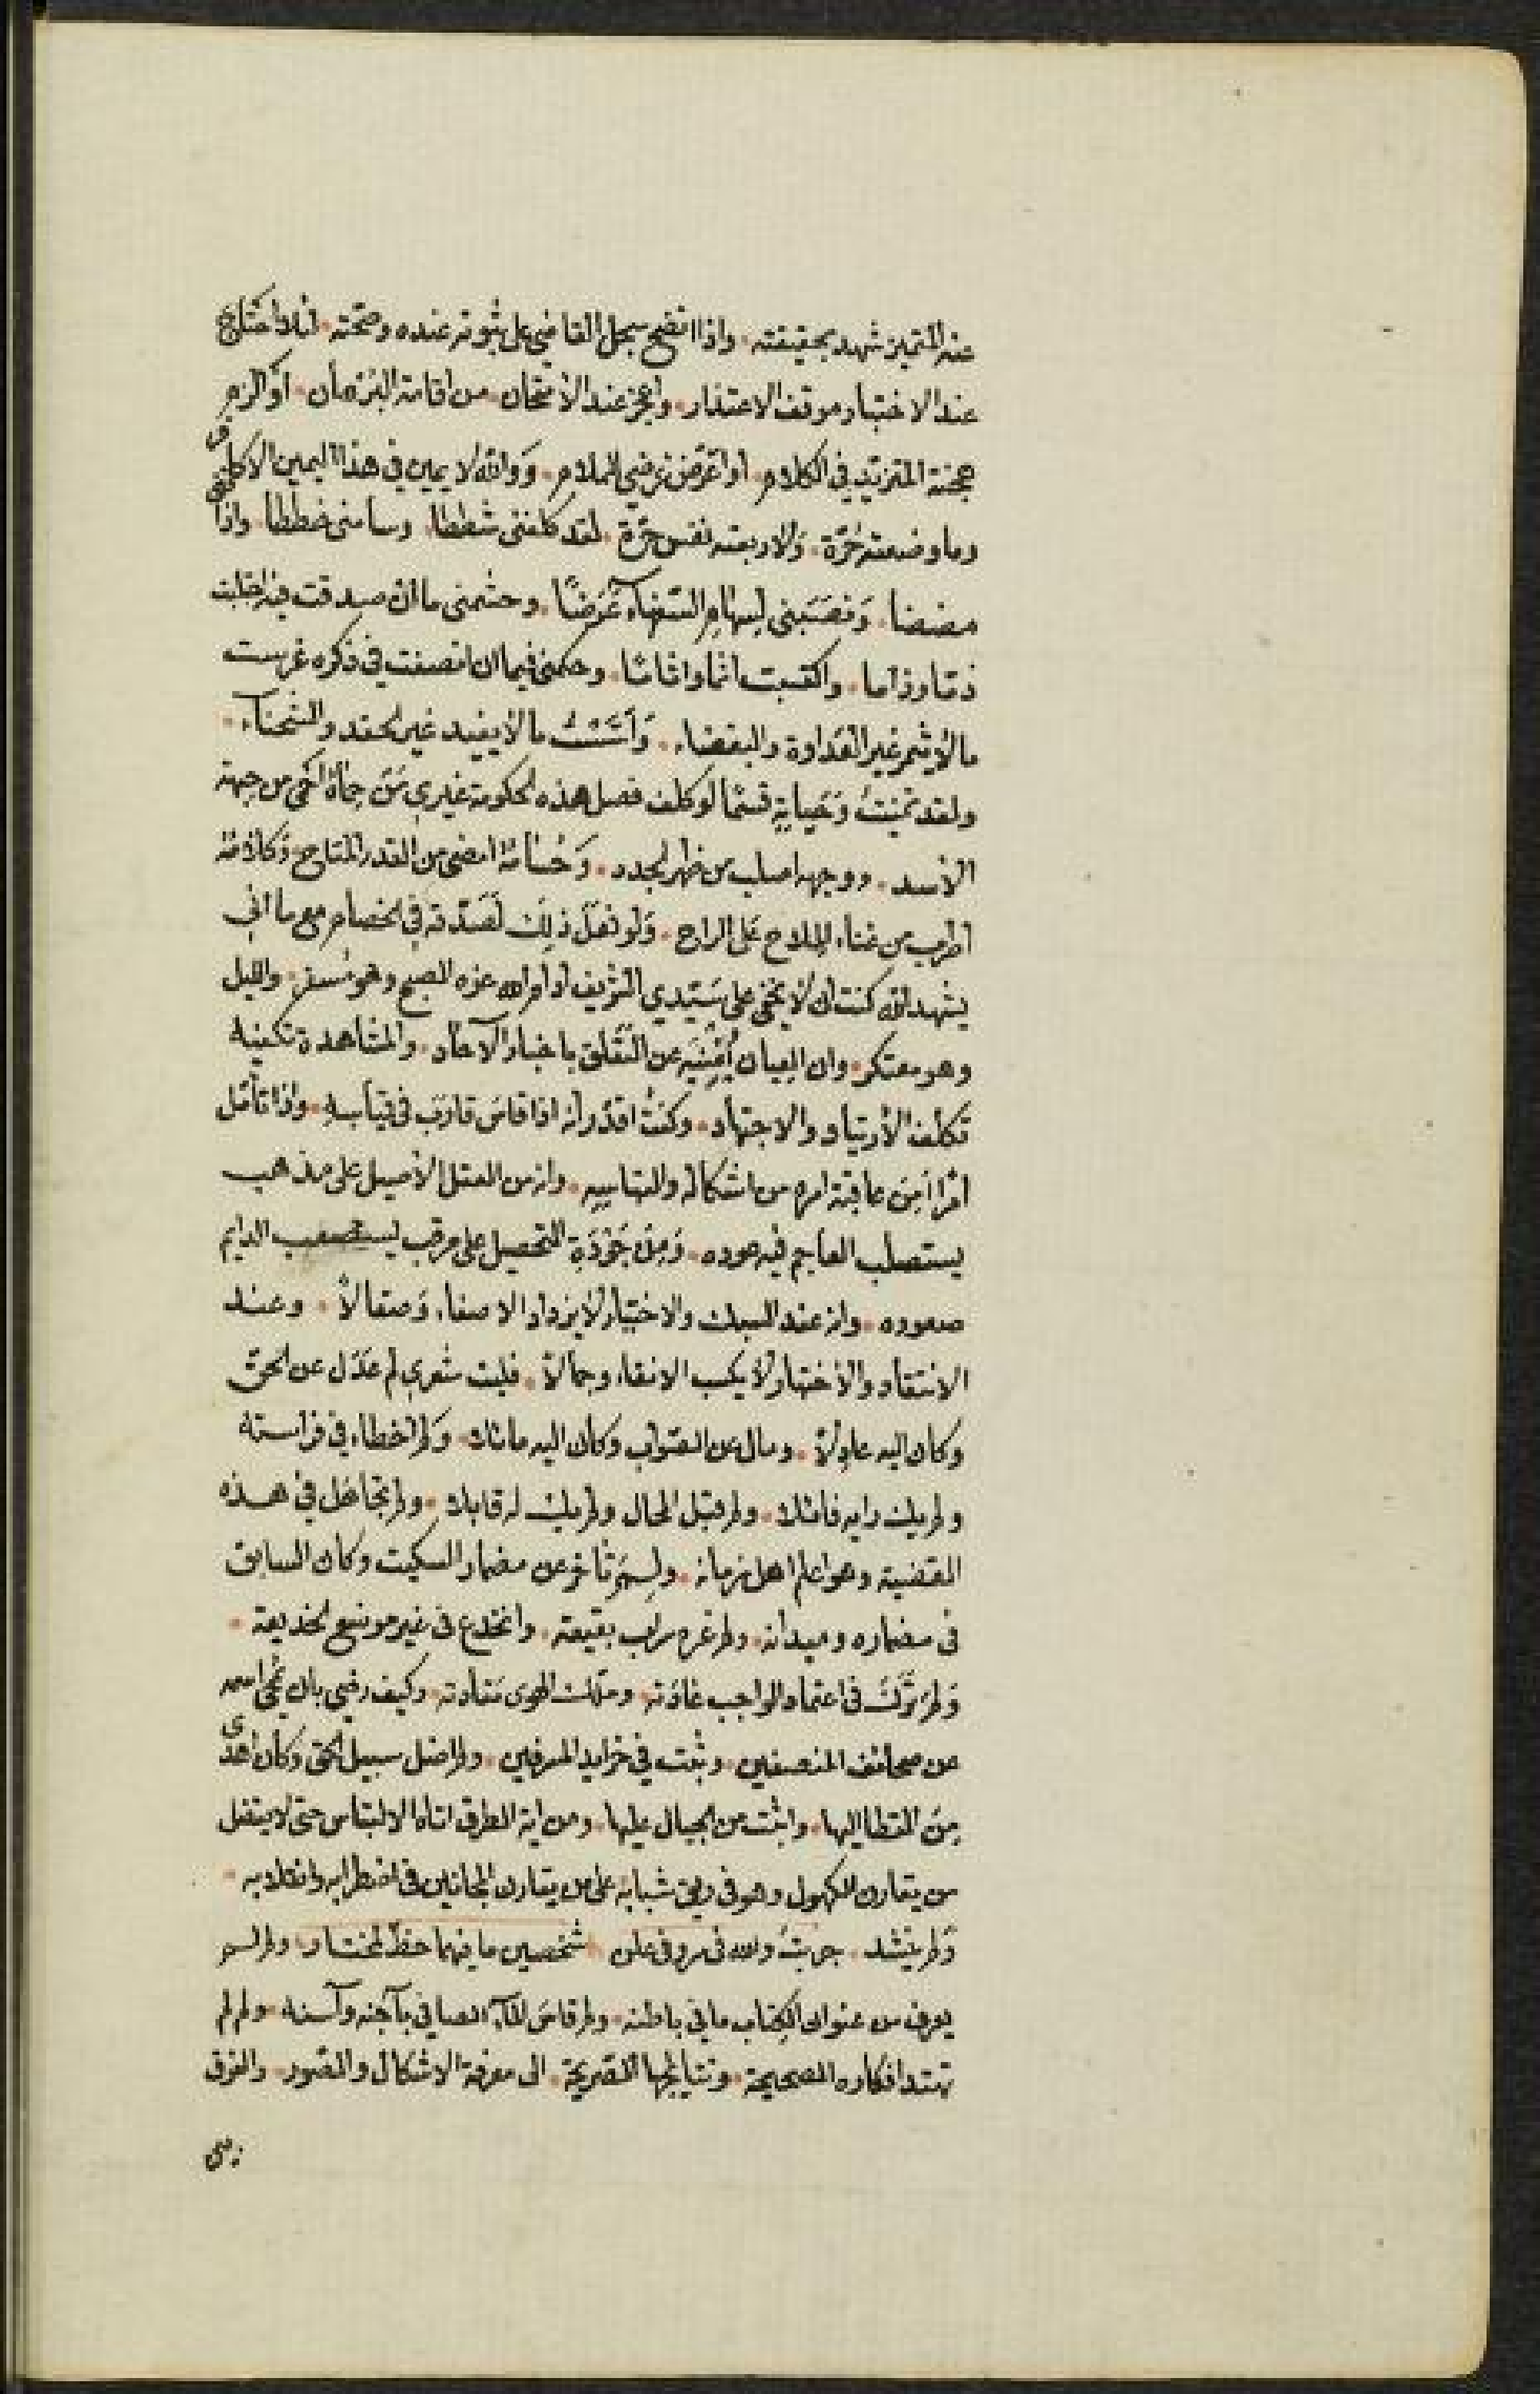 عند المتميز شهد بحقيقته واذا اتضح سجل القاضي على ثبوته عنده وصحته لئلا احتاج
عند الاختبار موقف الاعتذار واعجز عند الامتحان من اقامة البرهان او الزم
هجنة المتزيد في الكلام او اعرض عرضي للملام ووالله لا يمين في هذا اليمين الا كاف
وما وضعته حرة ولا ربعته نفس حرة لقد كلفني شططا وسامني خططا واذا
مضضا ونصبني لسهام السفهاء غرضًا وحشمني ما ان صدقت فيه اجتلبت
ذما وذاما واكتسبت اثما واثاما وحكمني فيما ان انصفت في ذكره غرست
ما لا يثمر غير العداوة والبغضاء وأسّست ما لا يفيد غير الحقد والشحناء
ولقد تمنيت وحياته قسما لو كلف فصل هذه الحكومة غيري ممن جنانه اقوى من جبهة
الاسد ووجهه اصلب من ظهر الجدد وحسامه امضى من القدر المتاح وكلامه
اطرب من غناء الملاح على الراح ولو فعل ذلك لصدقه في الخصام مع ما اني
يشهد الله كنت ان لا يخفى على سيدي الشريف ادام الله عزه الصبح وهو مسفر والليل
وهو معتكر وان العيان يغنيه عن التعلق باخبار الآحاد والمشاهدة تكفيه
تكلف الارتياد والاجتهاد وكنت اقدر انه اذا قاس قارب في قياسه واذا تأمل
امرا امن عاقبة امره من اشكاله والتباسه وانه من العقل الاصيل على مذهب
يستصلب العاجم فيه عوده ومن جودة التحصيل على مرقب يستصعب الدايم
صعوده وانه عند السبك والاختيار لا يزداد الا صفاء وصقالاً وعند
الانتقاد والاختبار لا يكسب الا نقاء وجمالاً فليت شعري لم عدل عن الحق
وكان اليه عادلا ومال عن الصواب وكان اليه مائلا ولم اخطاء في فراسته
ولم يك رايه فائلا ولم قبل المحال ولم يك له قابلا ولم تجاهل في هذه
القضية وهو اعلم اهل زمانه ولم تأخر عن مضمار السكيت وكان السابق
في مضماره وميدانه ولم غره سراب بقيعة وانخدع في غير موضع الخديعة
ولم ترك في اعتماد الواجب عادته وملك الهوى مقادته وكيف رضي بان يمحى اسمه
من صحائف المنصفين ويثبت في جرايد المسرفين ولم اضل سبيل الحق وكان اهدى
من القطا اليها واثبت من الجبال عليها ومن اية الطرق اتاه الالتباس حتى لا يفضل
من يقارن الكهول وهو في ريق شبابه على من يقارن المجانين في اضطرابه وانقلابه
ولم ينشد جربت والله في سر وفي علن شخصين ما فيهما حظ لمختار ولم لم
يعرف من عنوان الكتاب ما في باطنه ولم قاس الماء الصافي بآجنه وآسنه ولم لم
تهتد افكاره الصحيحة ونتايجها الصريحة الى معرفة الاشكال والصور والفرق